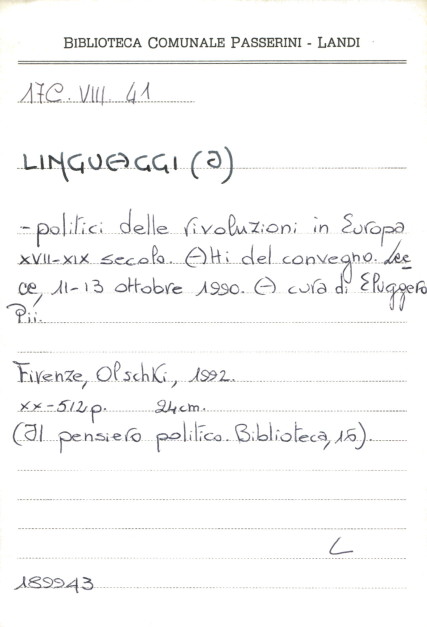 BIBLIOTECA COMUNALE PASSERINI - LANDI
17C. VIII. 41
LINGUAGGI (I)
- politici delle rivoluzioni in Europa
XVII-XIX secolo. Atti del convegno. Lec
ce, 11-13 ottobre 1990. A cura di Eluggero
Pii.
Firenze, Olschki, 1992.
XX-512 p. 24cm.
(Il pensiero politico. Biblioteca, 15).
L
189943